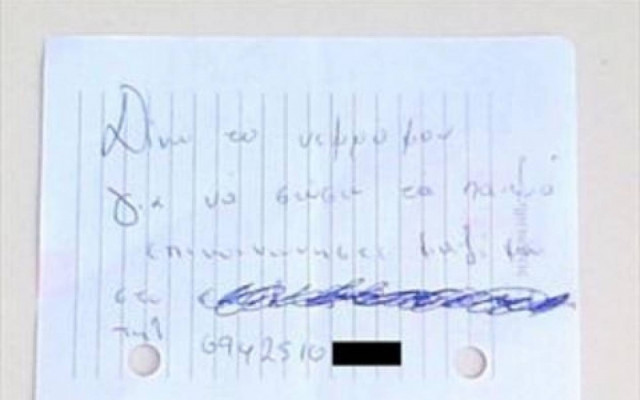 Δίνω το νεφρο μου
για να σωσω το παιδι
επικοινωνησε μαζι μου
στο
τηλ 6942510